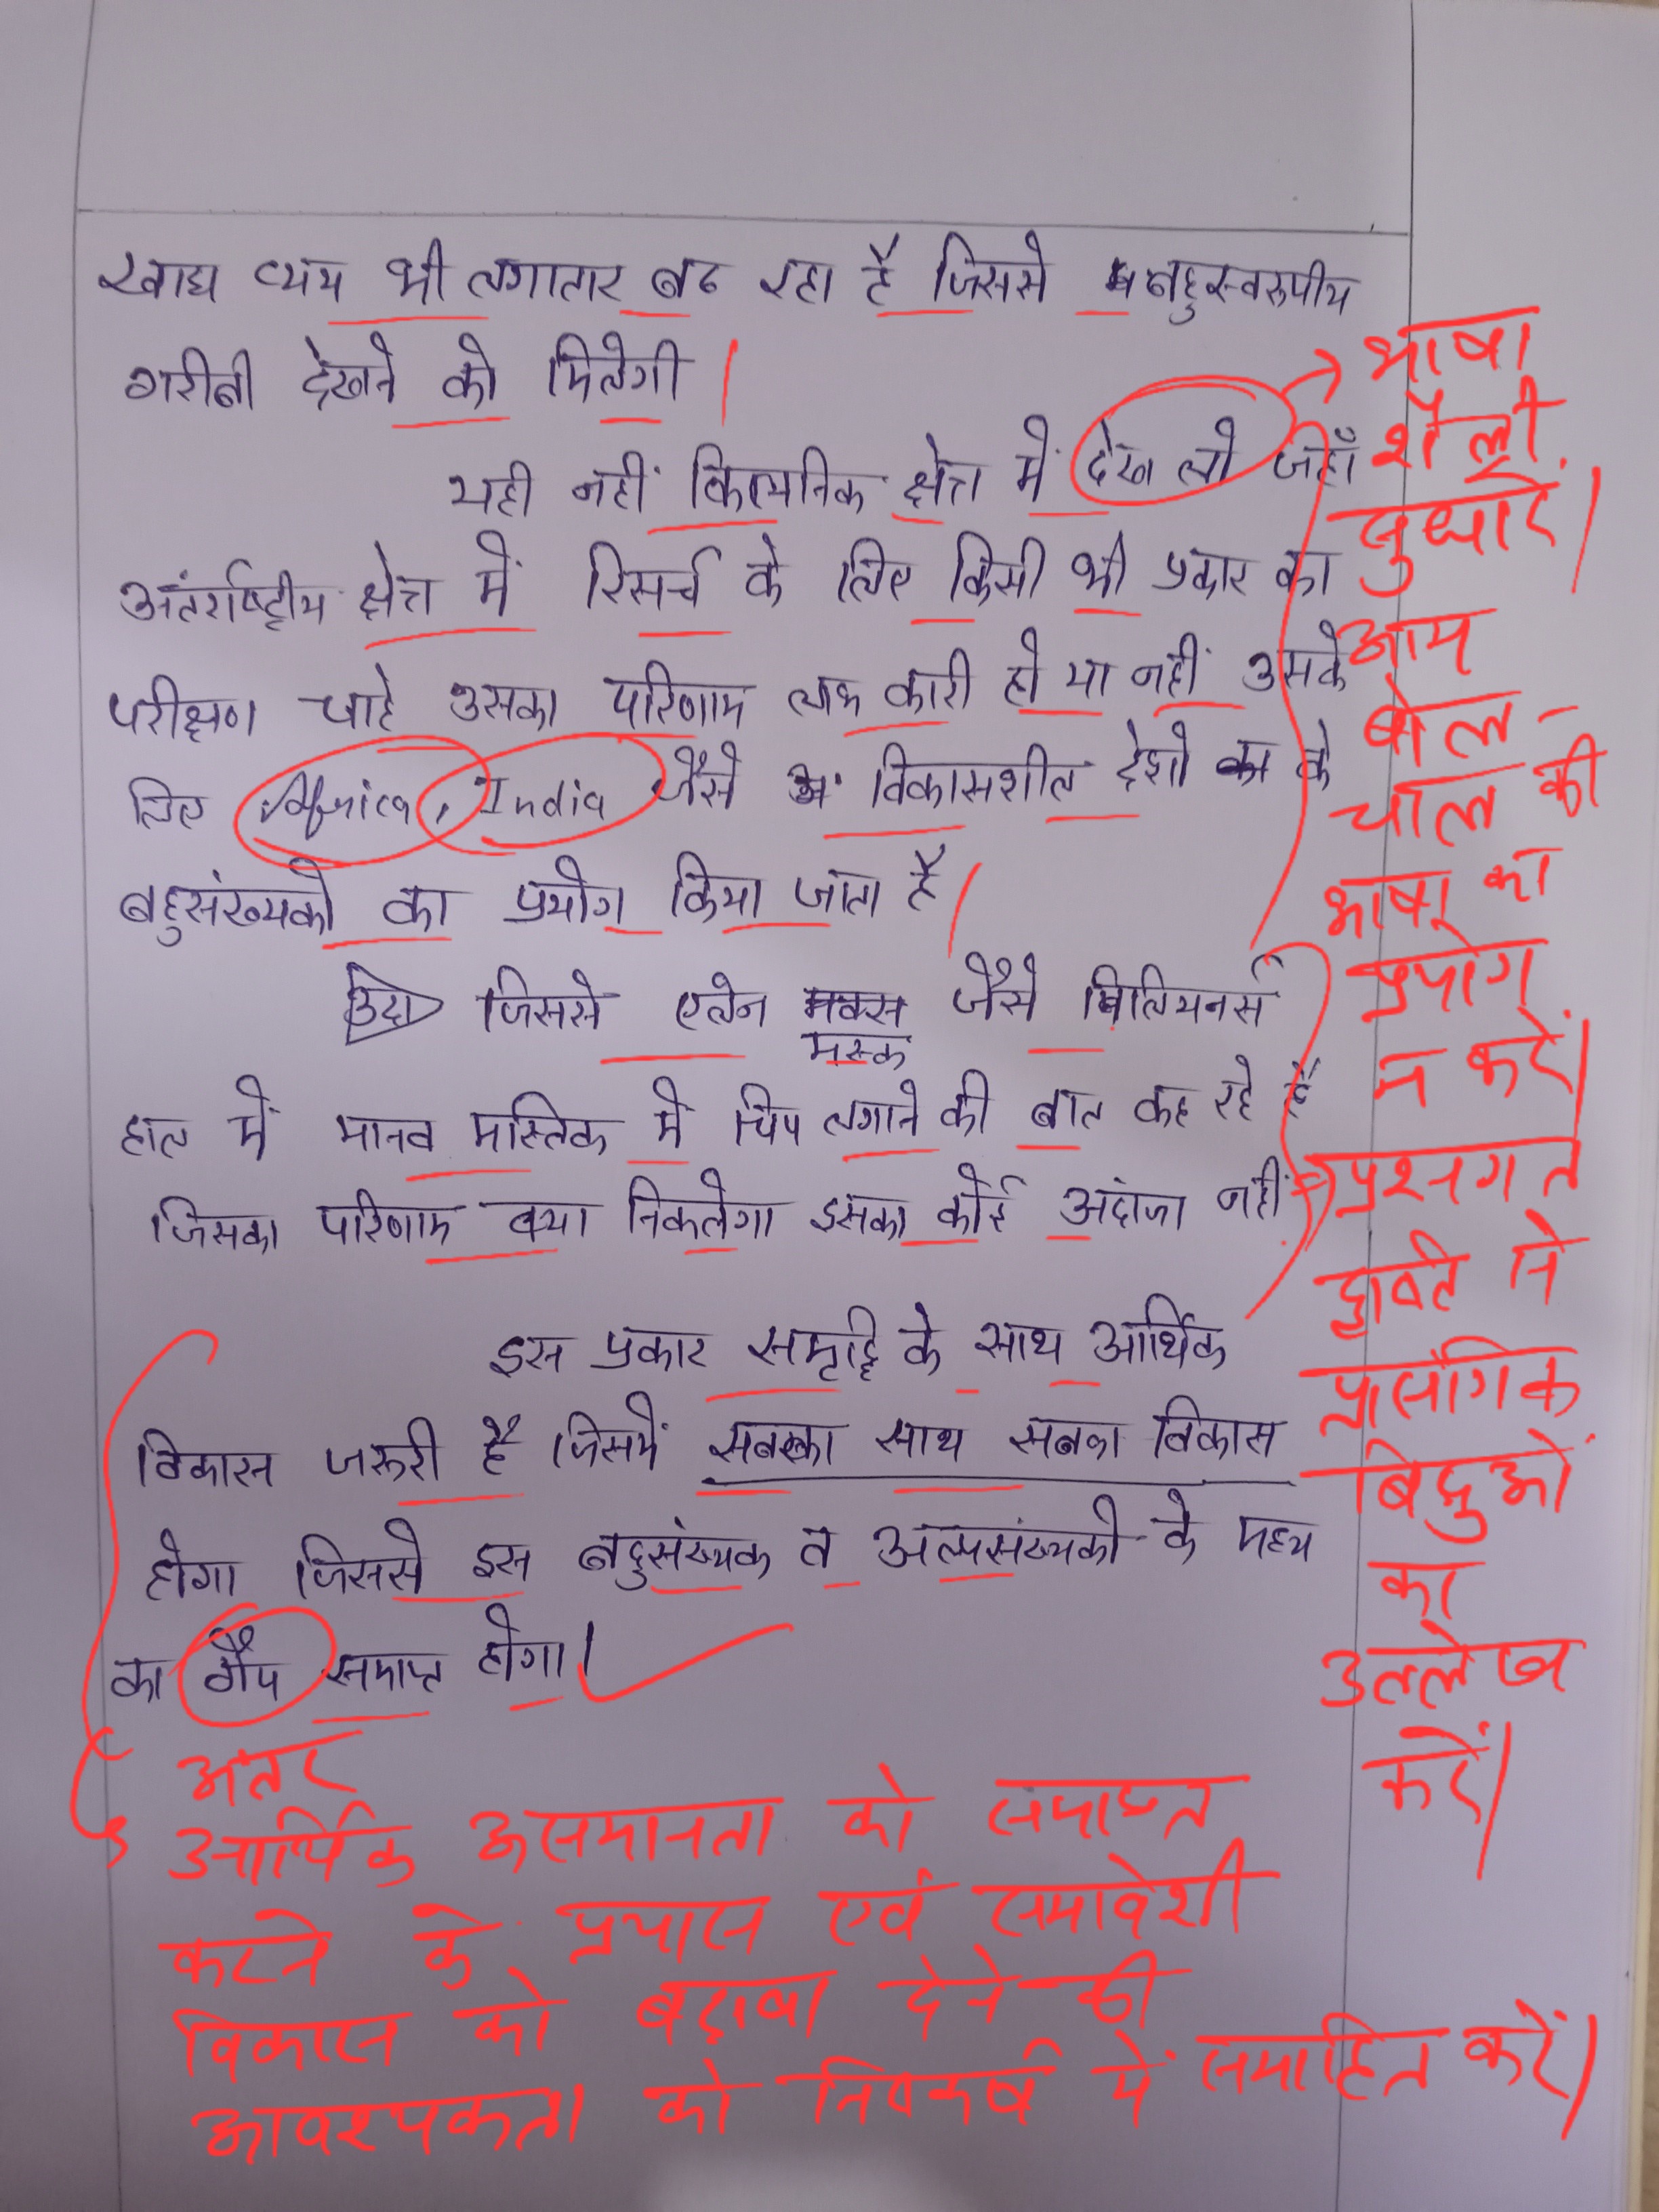 खाद्य व्यय भी लगातार बढ रहा है जिससे बहुस्वरुपीय
गरीबी देखने को मिलेगी |
यही नहीं क्षेत्र में देख लो जहाँ
अंतर्राष्ट्रीय क्षेत्र में रिसर्च के लिए किसी भी प्रकार का
परीक्षण चाहे उसका परिणाम लाभ कारी हो या नहीं उसके
लिए Africa, India जैसे विकासशील देशो के
बहुसंख्यको का प्रयोग किया जाता है |
उदा जिससे एलेन मक्स जैसे बिलियनर्स
मस्क
हाल में मानव मस्तिक में चिप लगाने की बात कह रहे है
जिसका परिणाम क्या निकलेगा इसका कोई अदांजा नही
इस प्रकार समृद्दि के साथ आर्थिक
विकास जरूरी है जिसमें सबका साथ सबका विकास
होगा जिससे इस बहुसंख्यक व अल्पसंख्यको के मध्य
का गैप समाप्त होगा।
अंतर
आर्थिक असमानता को समाप्त
करने के प्रयास एवं समावेशी
विकास को बढ़ावा देने की
आवश्यकता को निष्कर्ष में समाहित करें।
भाषा
शैली
सुधारें।
आम
बोल-
चाल की
भाषा का
प्रयोग
न करें।
प्रश्नगत
दृष्टि से
प्रासंगिक
बिंदुओं
का
उल्लेख
करें।